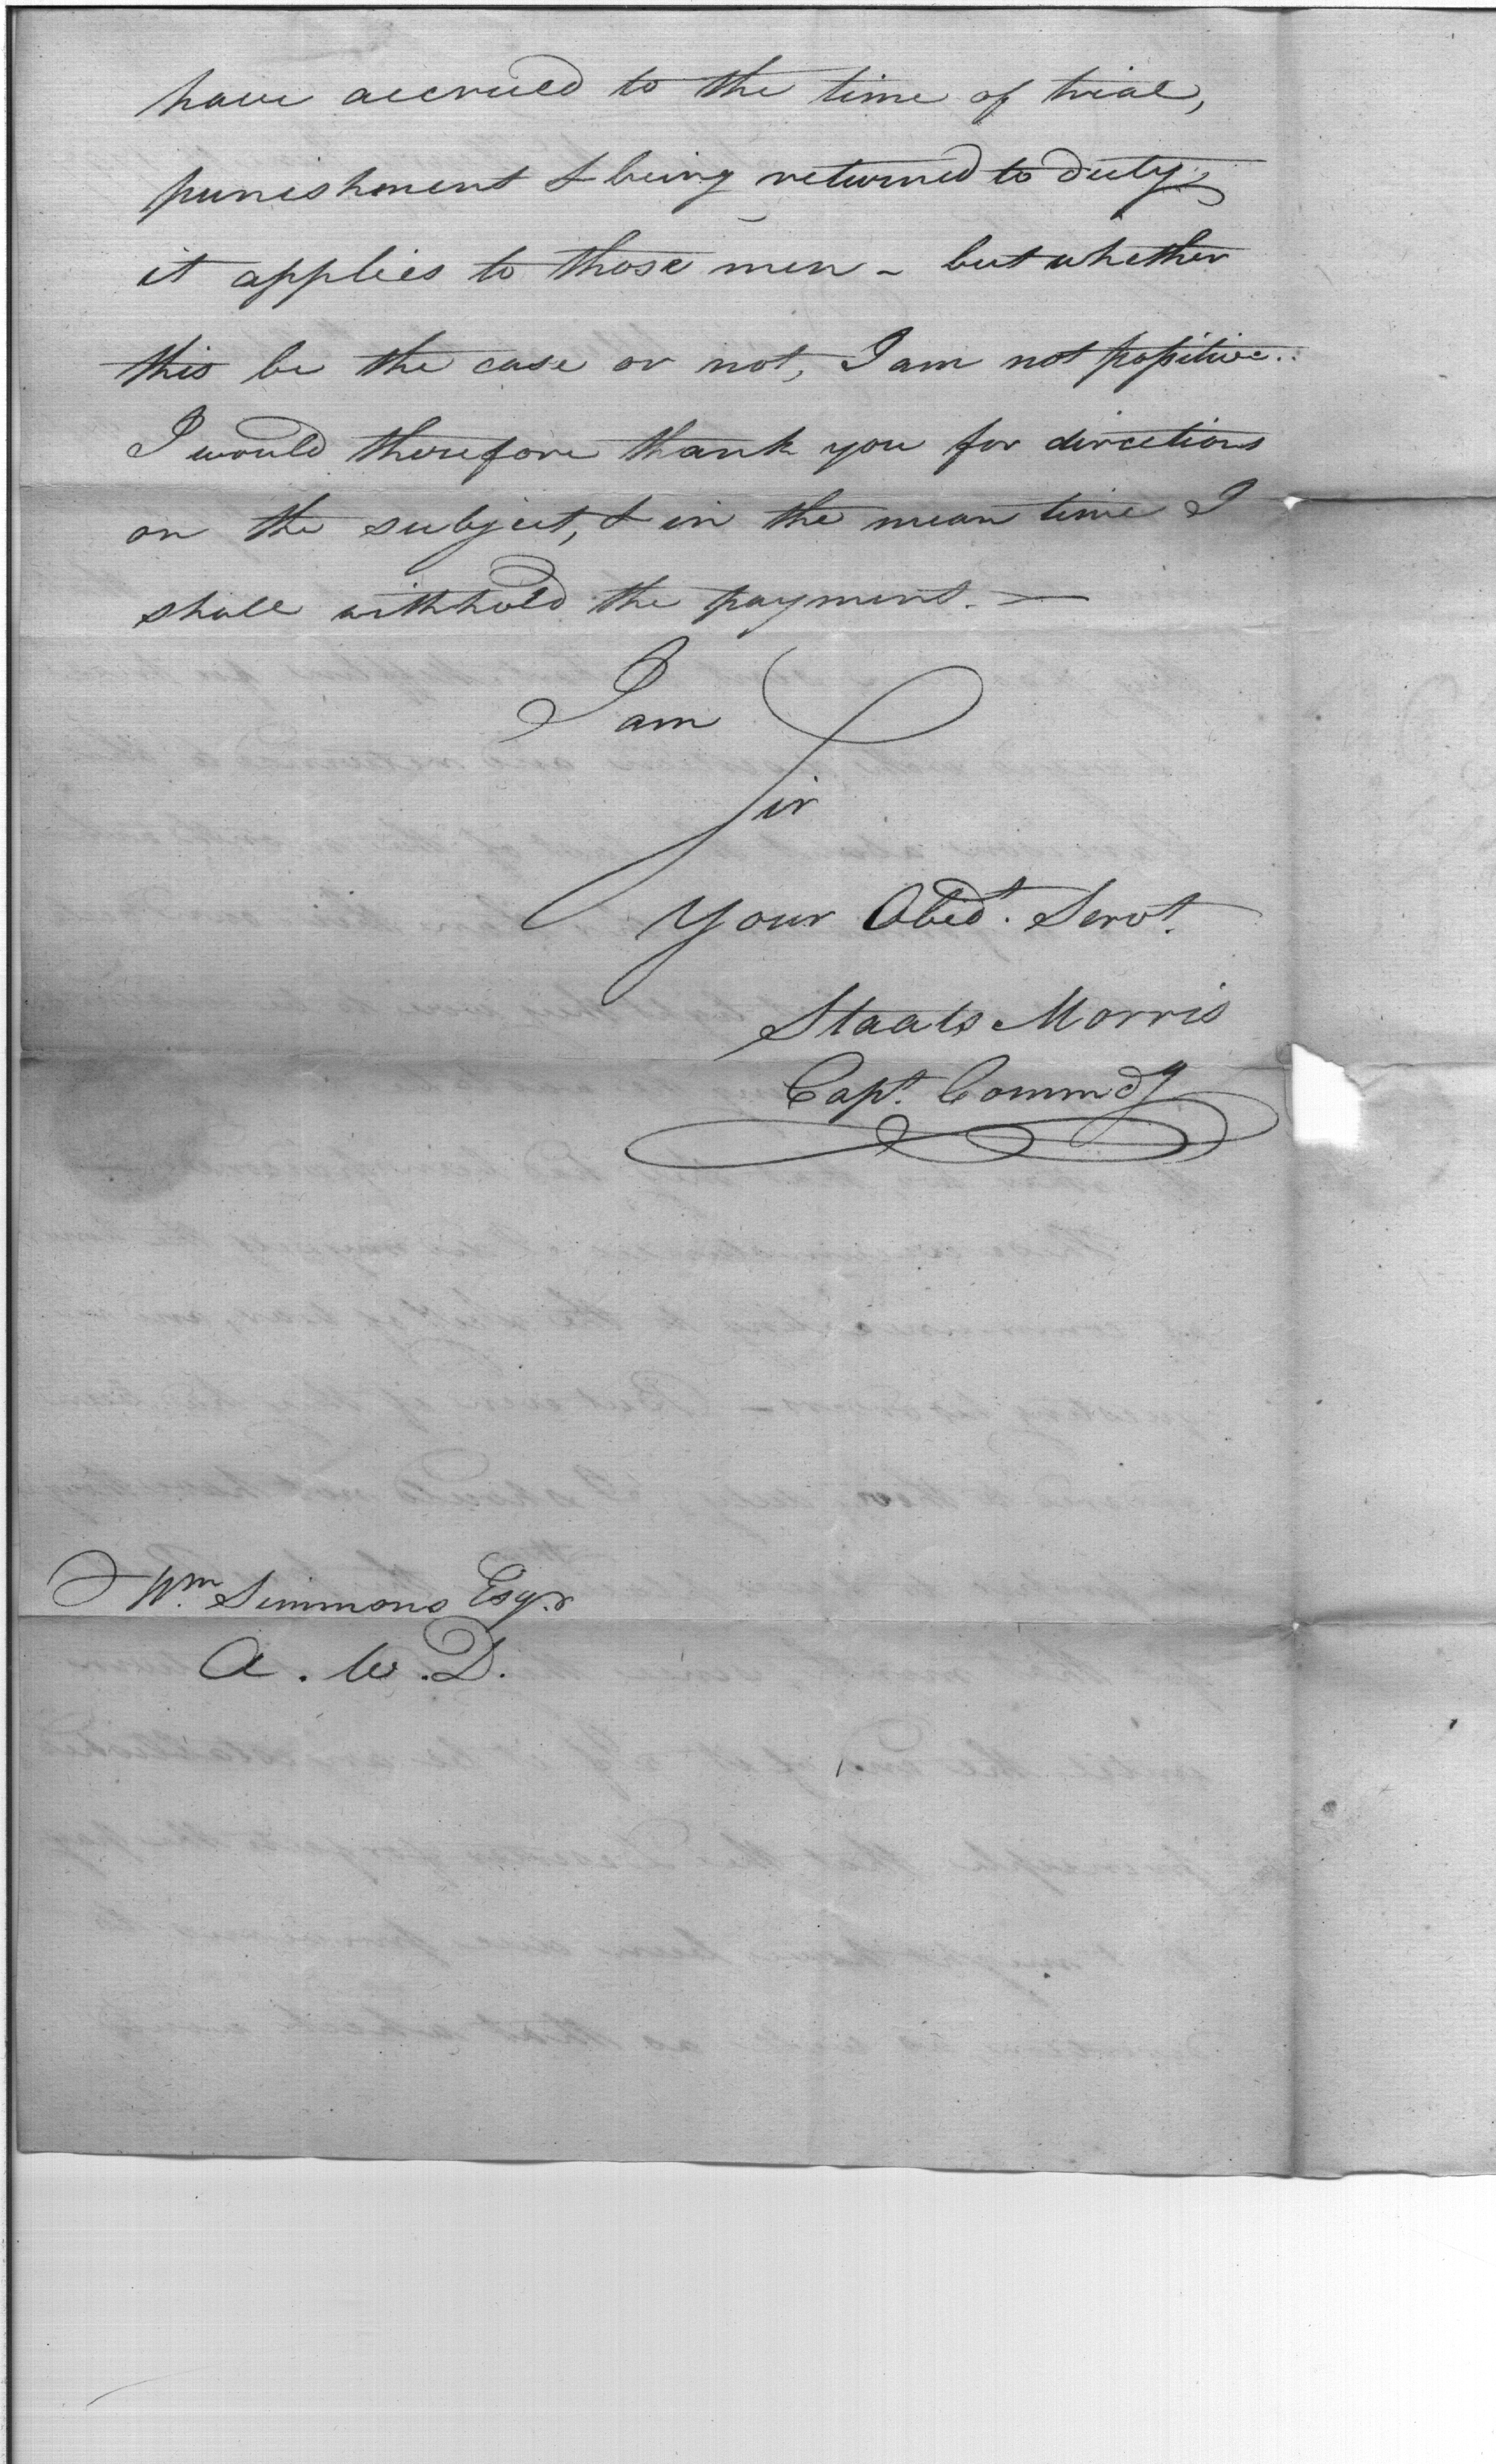 have accrued to the time of trial,
punishment & being returned to duty,
it applies to those men - but whether
this be the case or not, I am not possitive..
I would therefore thank you for directions
on the subject, & in the mean time I
shall withhold the payment. —
I am
Sir
Your Obedt. Servt.
Staats Morris
Capt. Commdg
Wm. Simmons Esqr
A. W. D.